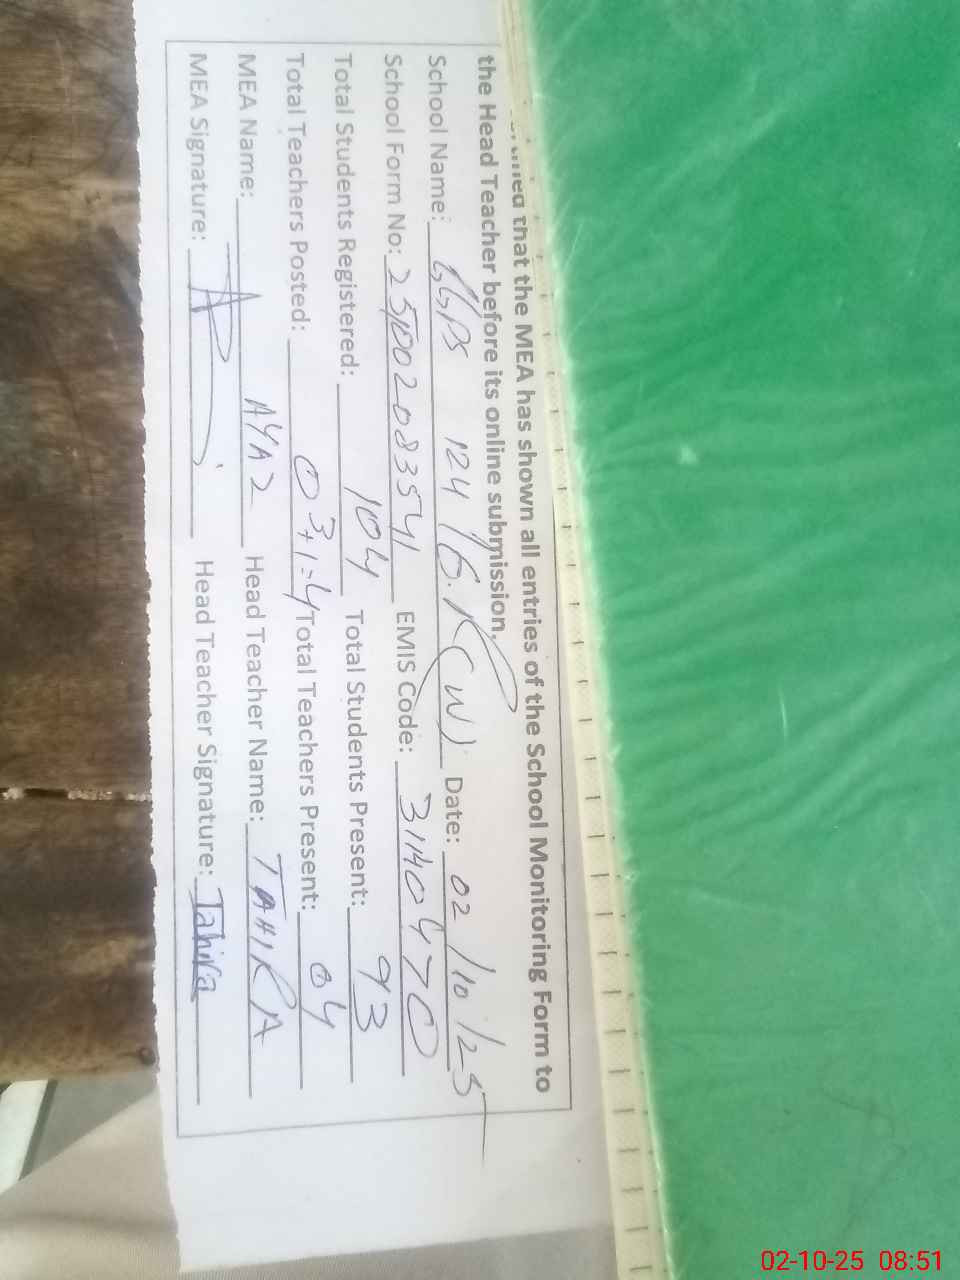 that the MEA has shown all entries of the School Monitoring Form to
the Head Teacher before its online submission.
School Name: GGPS 124 /6.R (W) Date: 02/10/25
School Form No: 251002083541 EMIS Code: 31140470
Total Students Registered: 104 Total Students Present: 93
Total Teachers Posted: 03+1=4 Total Teachers Present: 04
MEA Name: AYAZ Head Teacher Name: TAHIRA
MEA Signature: Head Teacher Signature: Tahira
02-10-25 08:51